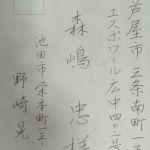 芦屋市三条南町一三
エスポワール広中四〇二号
森嶋忠様
池田市栄本町一三
野崎晃